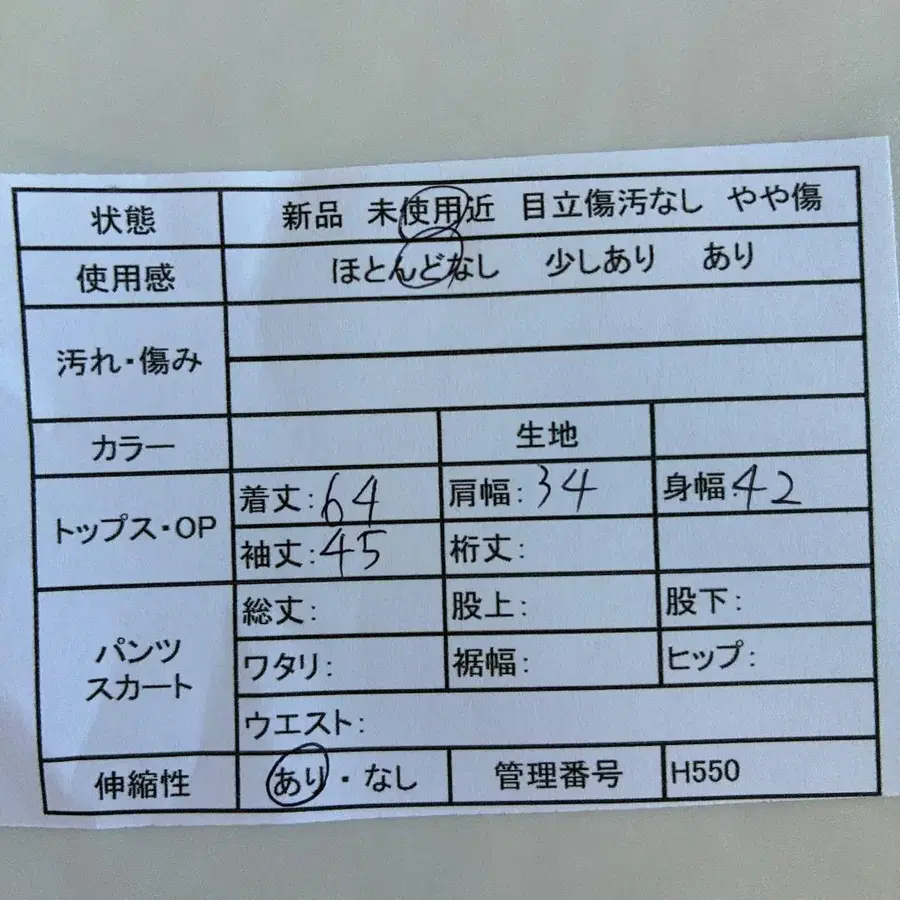 状態 新品 未使用近 目立傷汚なし やや傷
使用感 ほとんどなし 少しあり あり
汚れ・傷み
カラー 生地
トップス・OP 着丈:64 肩幅:34 身幅:42
袖丈:45 裄丈:
パンツ スカート 総丈: 股上: 股下:
ワタリ: 裾幅: ヒップ:
ウエスト:
伸縮性 あり・なし 管理番号 H550